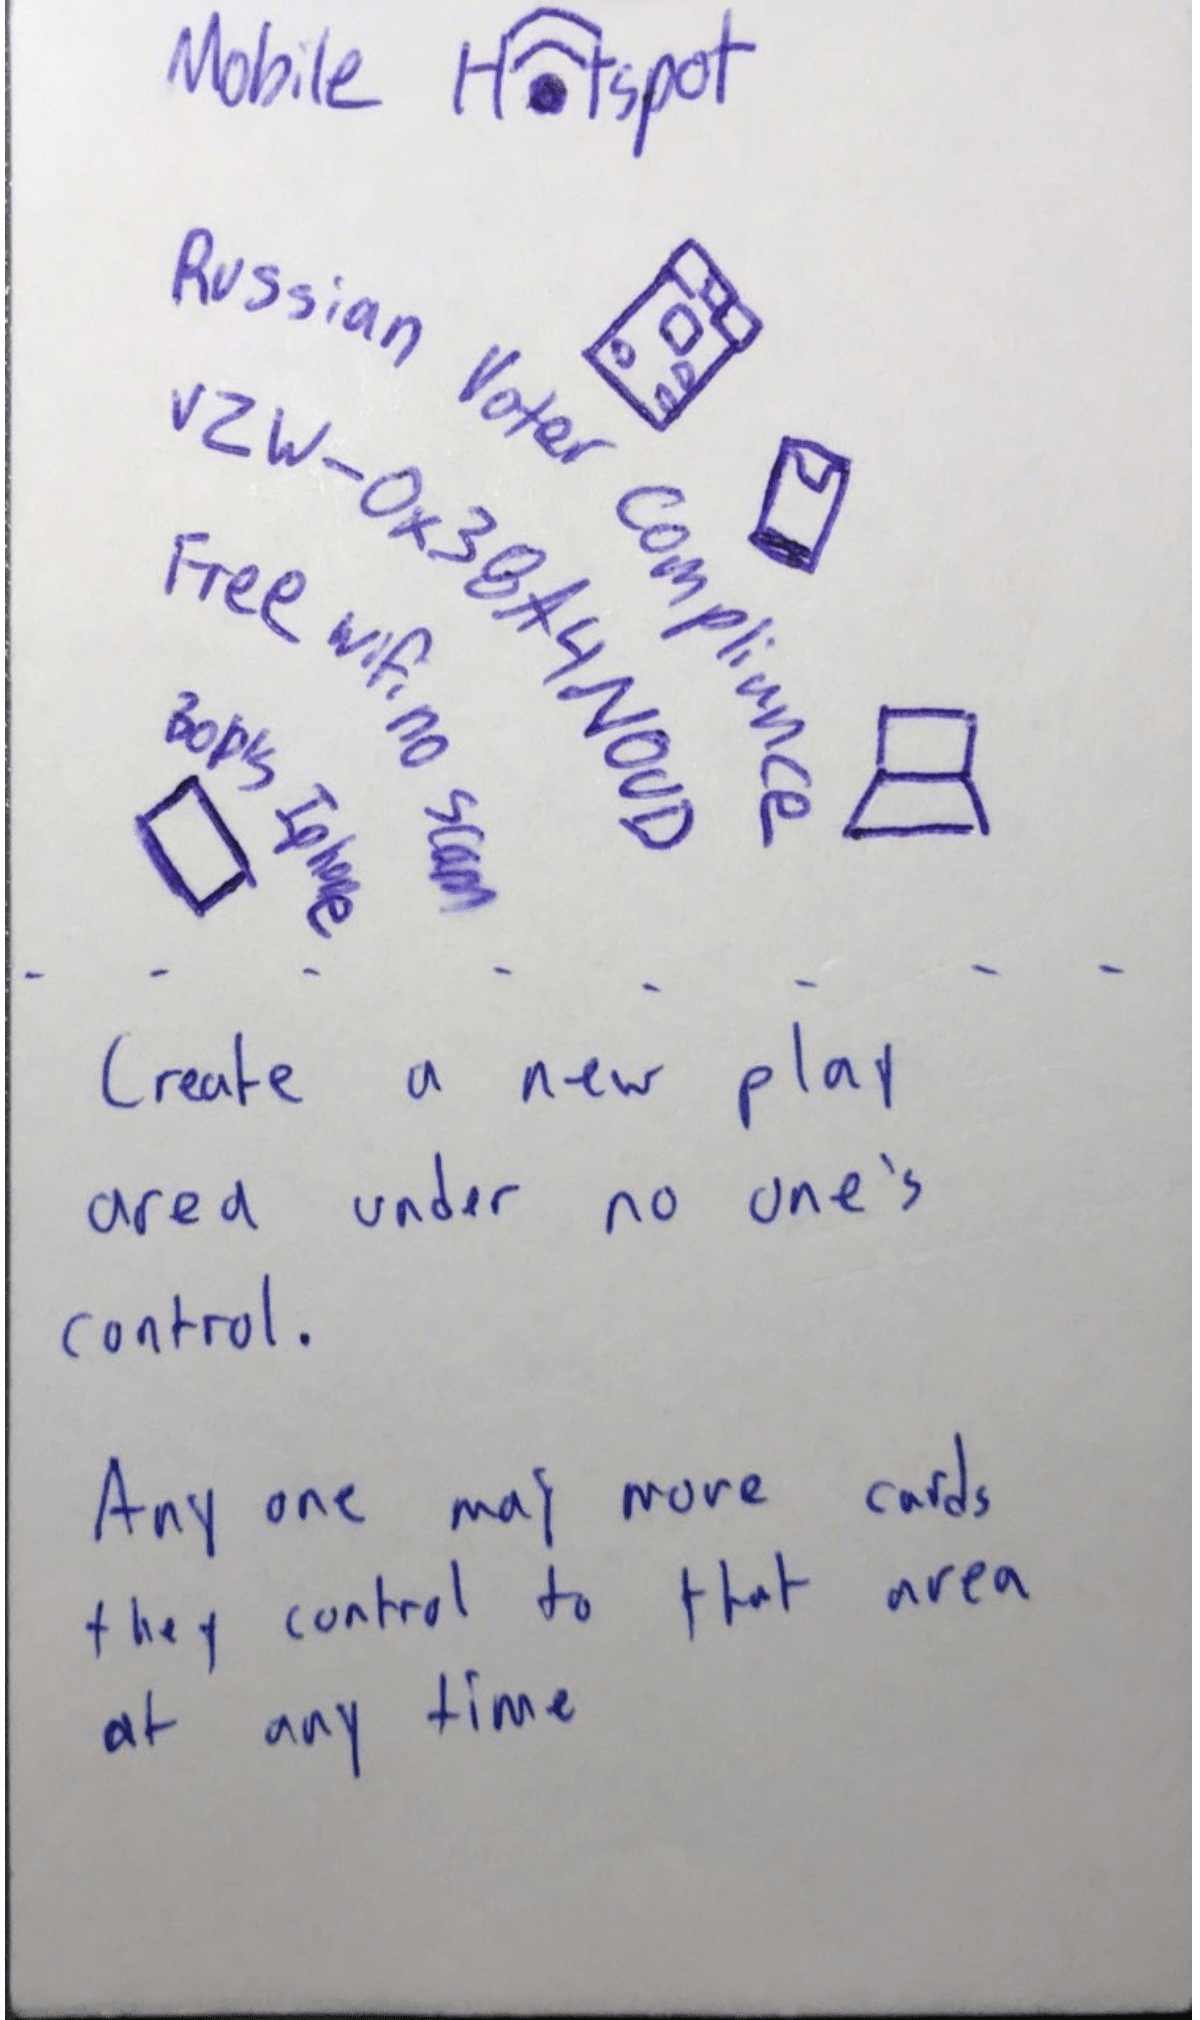 Mobile Hotspot
Russian Voter Complinnce
VZW-0x38A4NOUD
Free wifi no scam
Bobs Iphone
Create a new play
area under no one's
control.
Any one may move cards
they control to that area
at any time